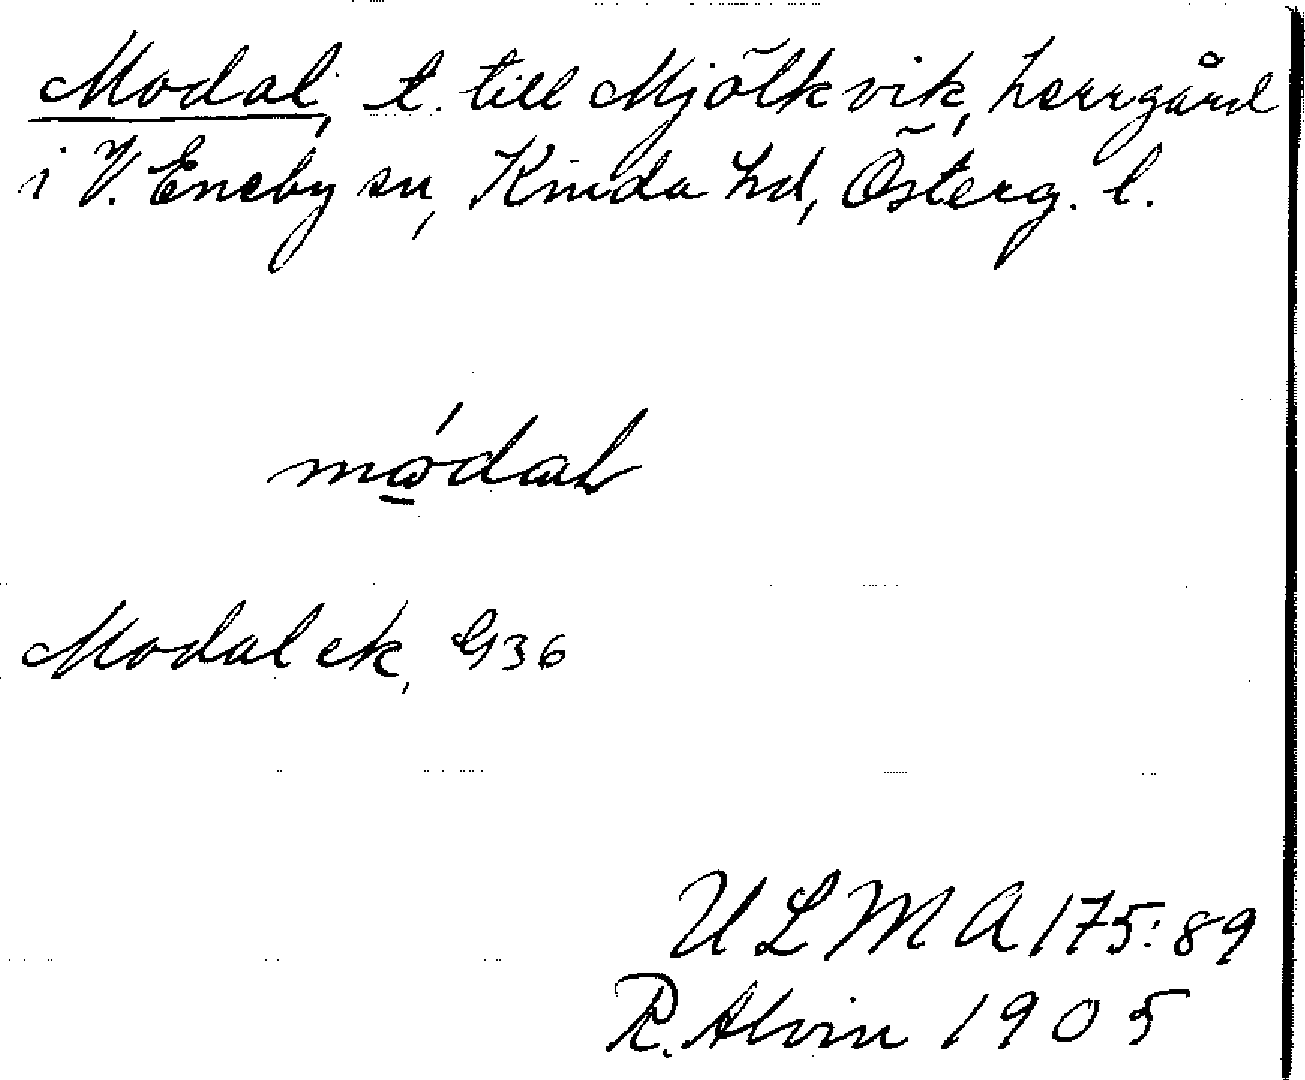 Modal, t. till Mjölkvik, herrgård
i V. Eneby sn, Kinda hd, Österg. l.
Modal ek, G36
ULMA 175:89
R. Alvin 1905